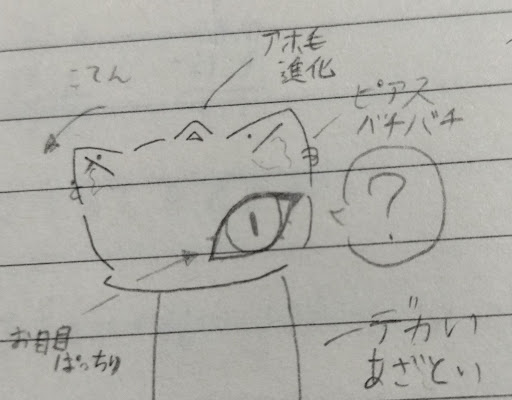 アホ毛
進化
こてん
ピアス
バチバチ
?
お目目
ぱっちり
デカい
あざとい